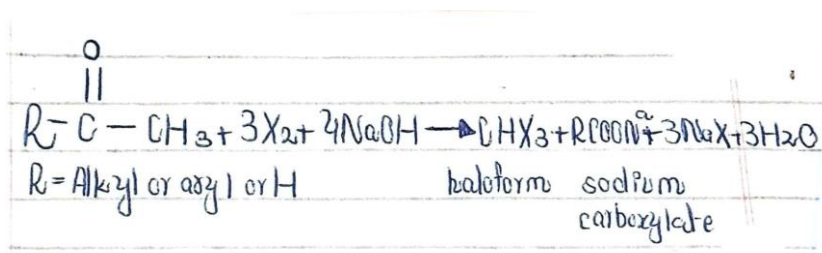 O
||
R-C-CH3+3X2+4NaOH→CHX3+RCOONa+3NaX+3H2O
R=Alkyl or aryl or H haloform sodium
carboxylate